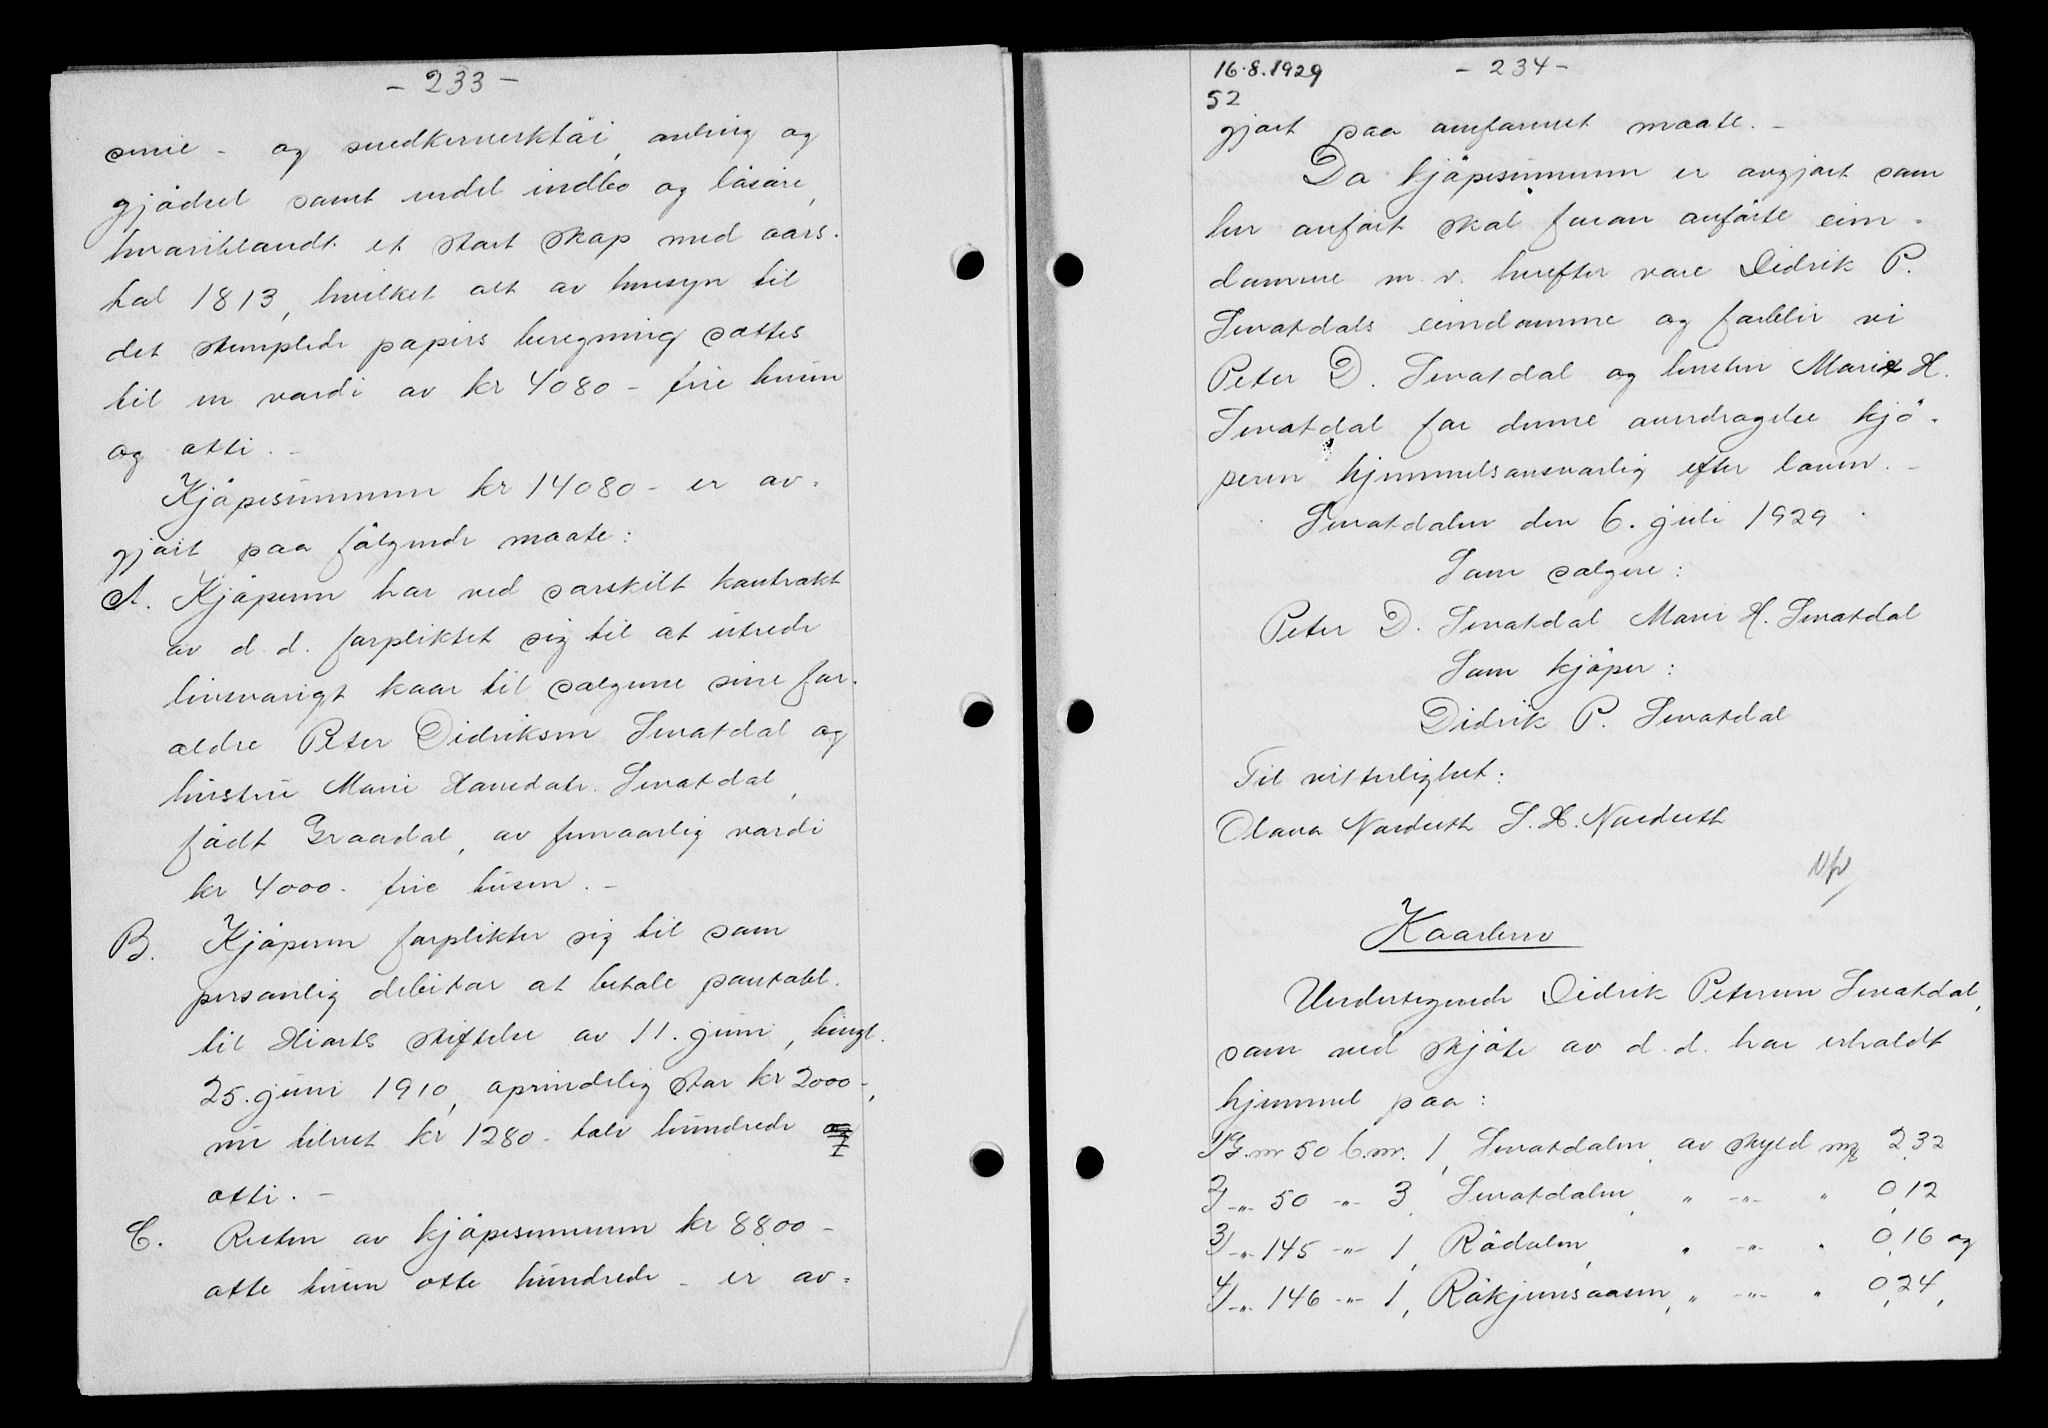 - 233 -
smie - og snedkerverktöi, avling og
gjödsel samt endel indbo og lösöre,
hvoriblandt et stort skap med aars-
tal 1813, hvilket alt av hensyn til
det stemplede papirs beregning sættes
til en værdi av kr 4080 - fire tusen
og otti. -
Kjöpesummen kr 14080 - er av-
gjort paa fölgende maate:
A. Kjöperen har ved særskilt kontrakt
av d. d. forpliktet sig til at utrede
livsvarigt kaar til sælgerne sine for-
ældre Peter Didriksen Svartdal og
hustru Marie Hansdatr. Svartdal,
födt Graadal, av femaarlig værdi
kr 4000 - fire tusen. -
B. Kjöperen forplikter sig til som
personlig debitor at betale pantobl.
til Hiorts stiftelse av 11. juni, tingl.
25. juni 1910, oprindelig stor kr 2000 -,
nu tilrest kr 1280 - tolv hundrede og
otti. -
C. Resten av kjöpesummen kr 8800 -
otte tusen otte hundrede - er av-
16.8.1929
- 234 -
52
gjort paa omforenet maate. -
Da kjöpesummen er avgjort som
her anfört skal foran anförte eien-
domme m. v. herefter være Didrik P.
Svartdals eiendomme og forblir vi
Peter D. Svartdal og hustru Marie H.
Svartdal for denne overdragelse kjö-
peren hjemmelsansvarlig efter loven. -
Svartdalen den 6. juli 1929.
Som sælgere:
Peter D. Svartdal Marie H. Svartdal
Som kjöper:
Didrik P. Svartdal
Til vitterlighet:
Olava Nordseth S. H. Nordseth
Kaarbrev
Undertegnede Didrik Petersen Svartdal,
som ved skjöte av d. d. har erholdt
hjemmel paa:
1/ G. nr 50 b. nr. 1, Svartdalen, av skyld mk 2,32
2/ -"- 50 -"- 3, Svartdalen, " -"- " 0,12
3/ -"- 145 -"- 1, Rödalen, " -"- " 0,16 og
4/ -"- 146 -"- 1, Rökjemsaasen, " -"- " 0,24,